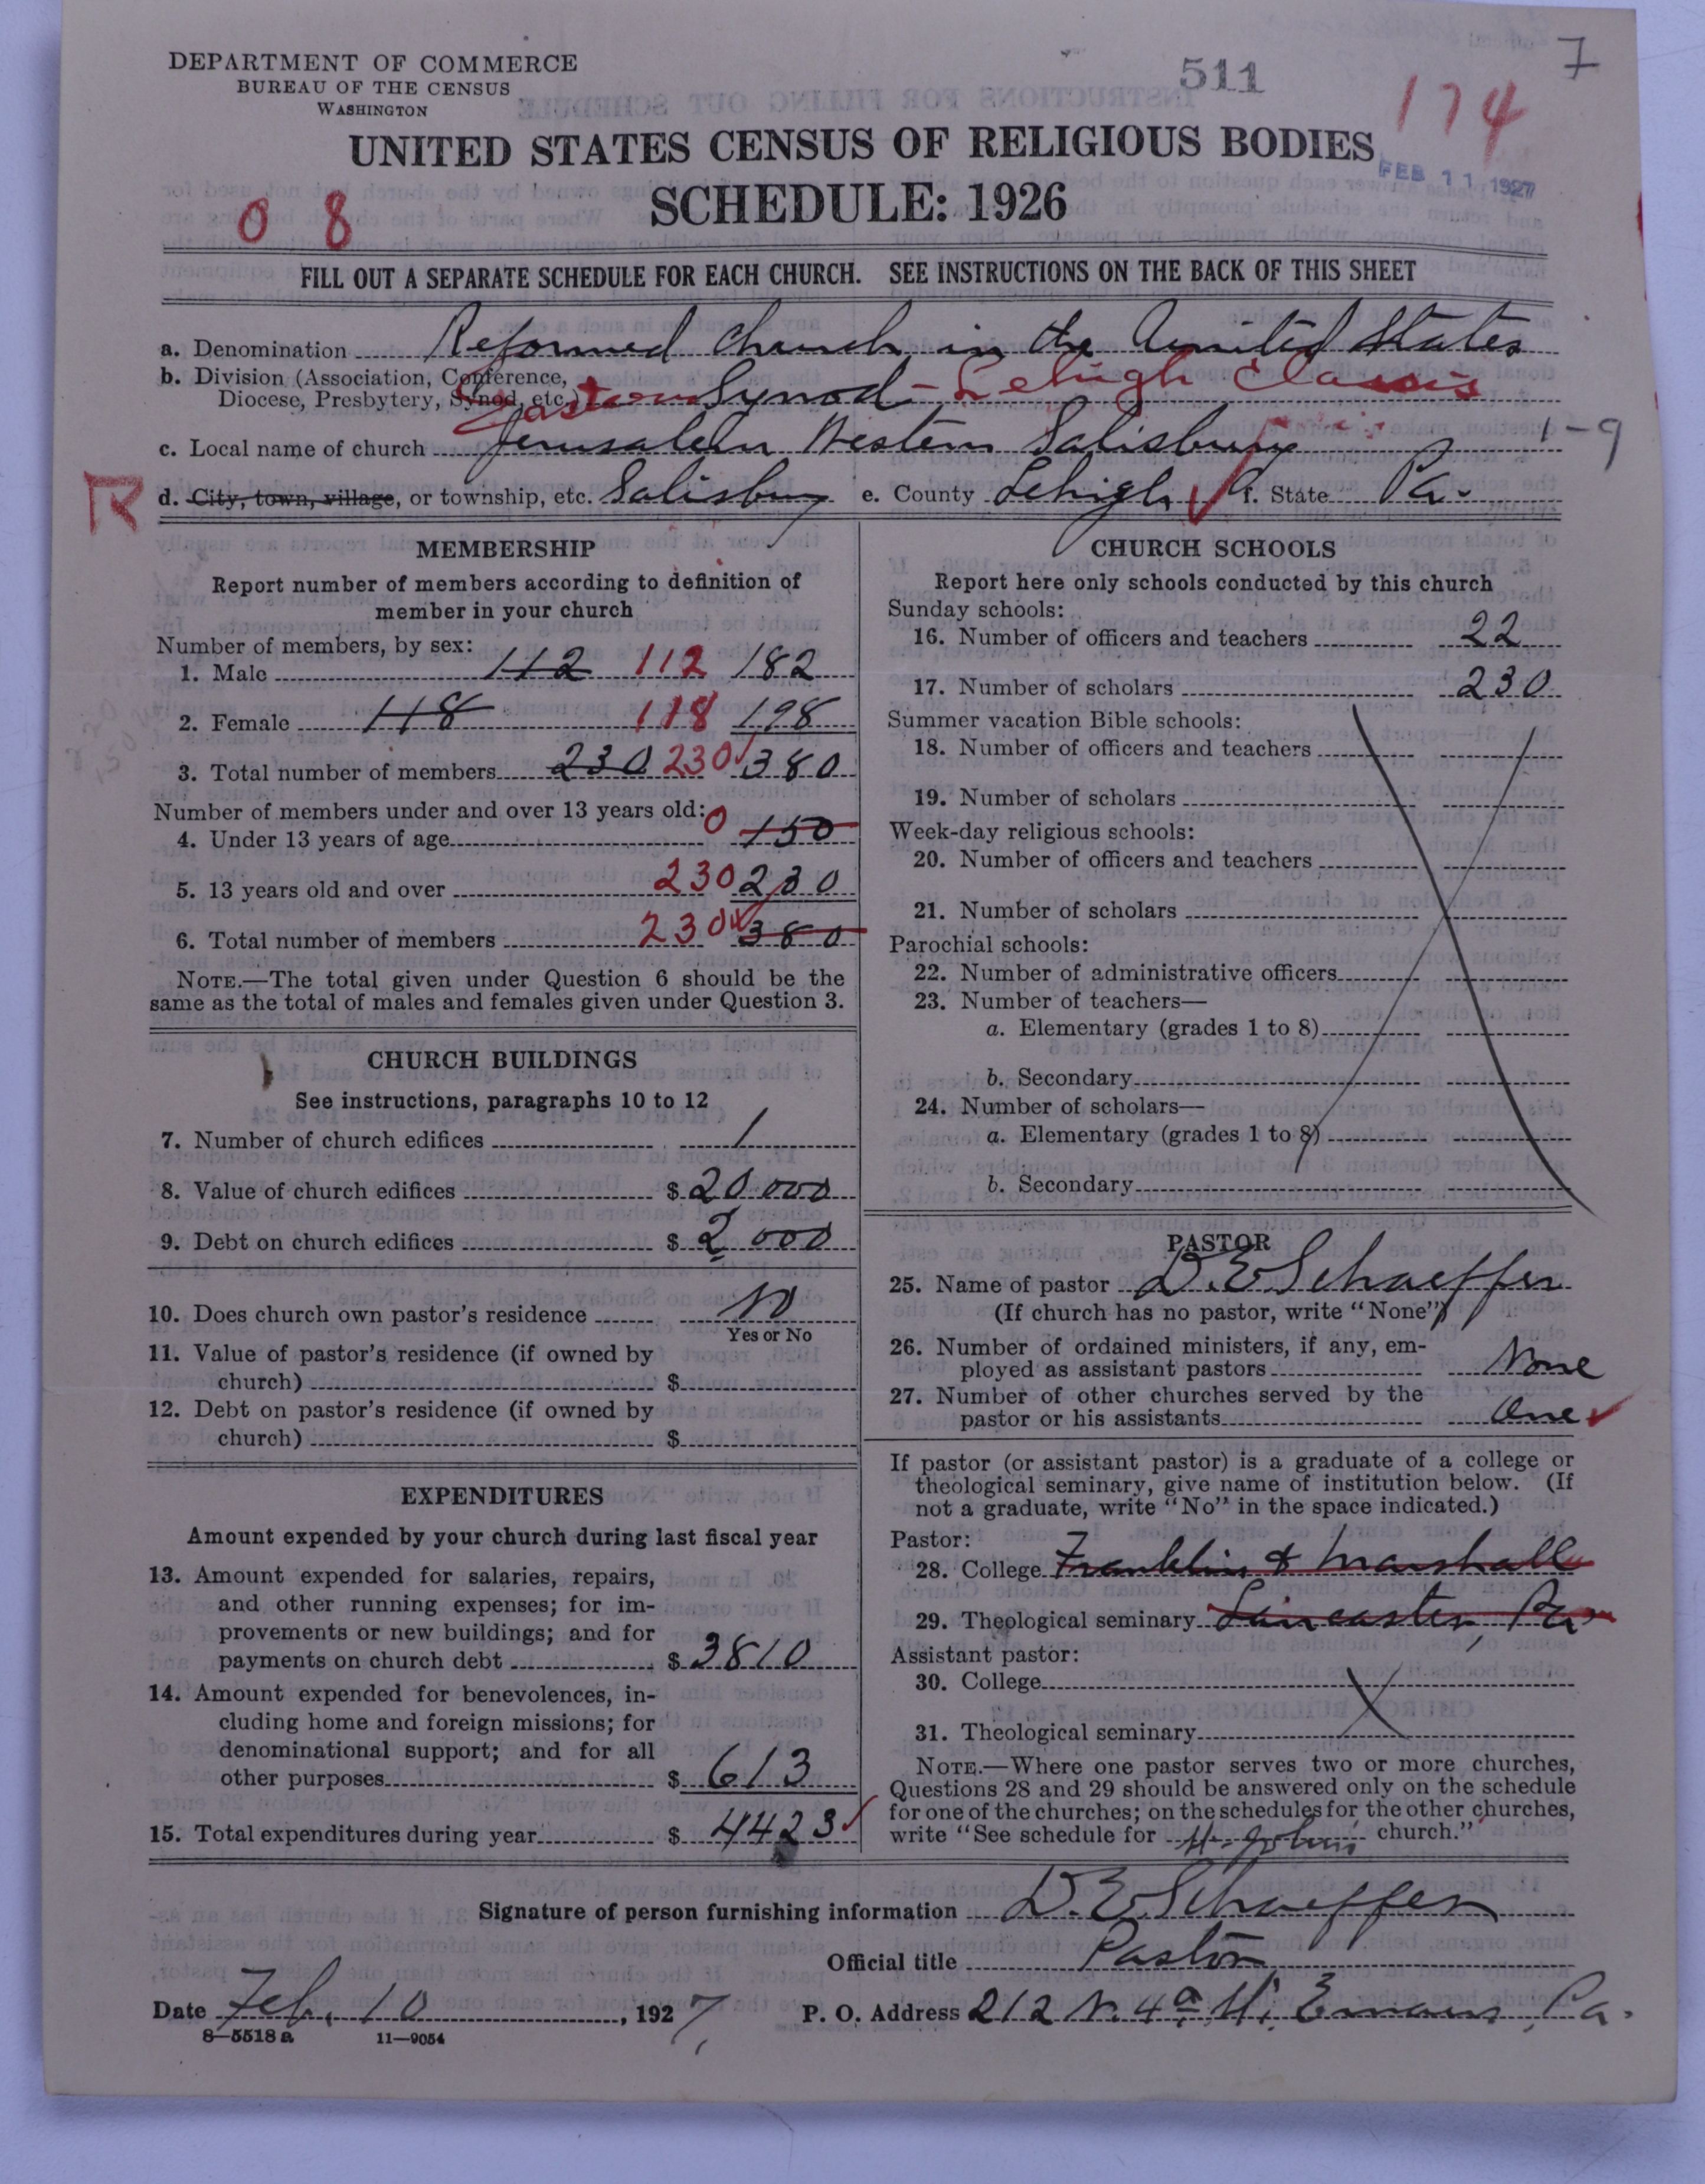 DEPARTMENT OF COMMERCE
BUREAU OF THE CENSUS
WASHINGTON
511
7
174
UNITED STATES CENSUS OF RELIGIOUS BODIES
FEB 11 1927
SCHEDULE: 1926
0 8
FILL OUT A SEPARATE SCHEDULE FOR EACH CHURCH. SEE INSTRUCTIONS ON THE BACK OF THIS SHEET
a. Denomination Reformed Church in the United States
b. Division (Association, Conference,
Diocese, Presbytery, Synod, etc.) Eastern Synod - Lehigh Classis
c. Local name of church Jerusalem Western Salisbury
1-9
R
d. City, town, village, or township, etc. Salisbury e. County Lehigh f. State Pa.
MEMBERSHIP
Report number of members according to definition of
member in your church
Number of members, by sex:
1. Male 112 112 182
2. Female 118 118 198
3. Total number of members 230 230 380
Number of members under and over 13 years old:
4. Under 13 years of age 0 150
5. 13 years old and over 230 230
6. Total number of members 230 380
NOTE.—The total given under Question 6 should be the
same as the total of males and females given under Question 3.
CHURCH BUILDINGS
See instructions, paragraphs 10 to 12
7. Number of church edifices 1
8. Value of church edifices $ 20 000
9. Debt on church edifices $ 2 000
10. Does church own pastor's residence No
Yes or No
11. Value of pastor's residence (if owned by
church) $
12. Debt on pastor's residence (if owned by
church) $
EXPENDITURES
Amount expended by your church during last fiscal year
13. Amount expended for salaries, repairs,
and other running expenses; for im-
provements or new buildings; and for
payments on church debt $ 3810
14. Amount expended for benevolences, in-
cluding home and foreign missions; for
denominational support; and for all
other purposes $ 613
15. Total expenditures during year $ 4423
CHURCH SCHOOLS
Report here only schools conducted by this church
Sunday schools:
16. Number of officers and teachers 22
17. Number of scholars 230
Summer vacation Bible schools:
18. Number of officers and teachers
19. Number of scholars
Week-day religious schools:
20. Number of officers and teachers
21. Number of scholars
Parochial schools:
22. Number of administrative officers
23. Number of teachers—
a. Elementary (grades 1 to 8)
b. Secondary
24. Number of scholars—
a. Elementary (grades 1 to 8)
b. Secondary
PASTOR
25. Name of pastor D. E. Schaeffer
(If church has no pastor, write "None")
26. Number of ordained ministers, if any, em-
ployed as assistant pastors None
27. Number of other churches served by the
pastor or his assistants One
If pastor (or assistant pastor) is a graduate of a college or
theological seminary, give name of institution below. (If
not a graduate, write "No" in the space indicated.)
Pastor:
28. College Franklin & Marshall
29. Theological seminary Lancaster, Pa
Assistant pastor:
30. College
31. Theological seminary
NOTE.—Where one pastor serves two or more churches,
Questions 28 and 29 should be answered only on the schedule
for one of the churches; on the schedules for the other churches,
write "See schedule for St. Johns church."
Signature of person furnishing information D. E. Schaeffer
Official title Pastor
Date Feb. 10, 1927, P. O. Address 212 N. 4th St. Emaus, Pa.
8-5518 a 11-9054